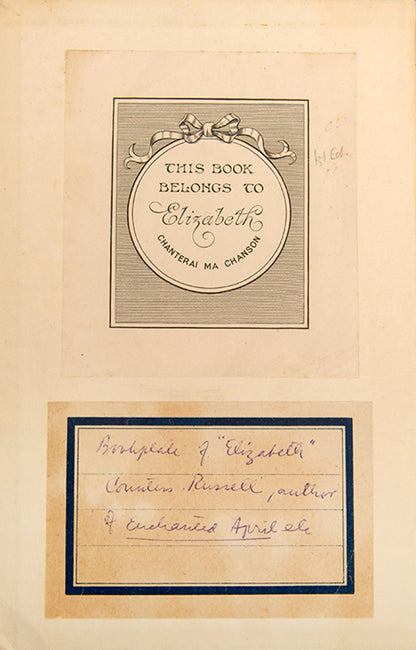 THIS BOOK
BELONGS TO
Elizabeth
CHANTERAI MA CHANSON
1st Edn.
Bookplate of "Elizabeth"
Countess Russell, author
of Enchanted April etc